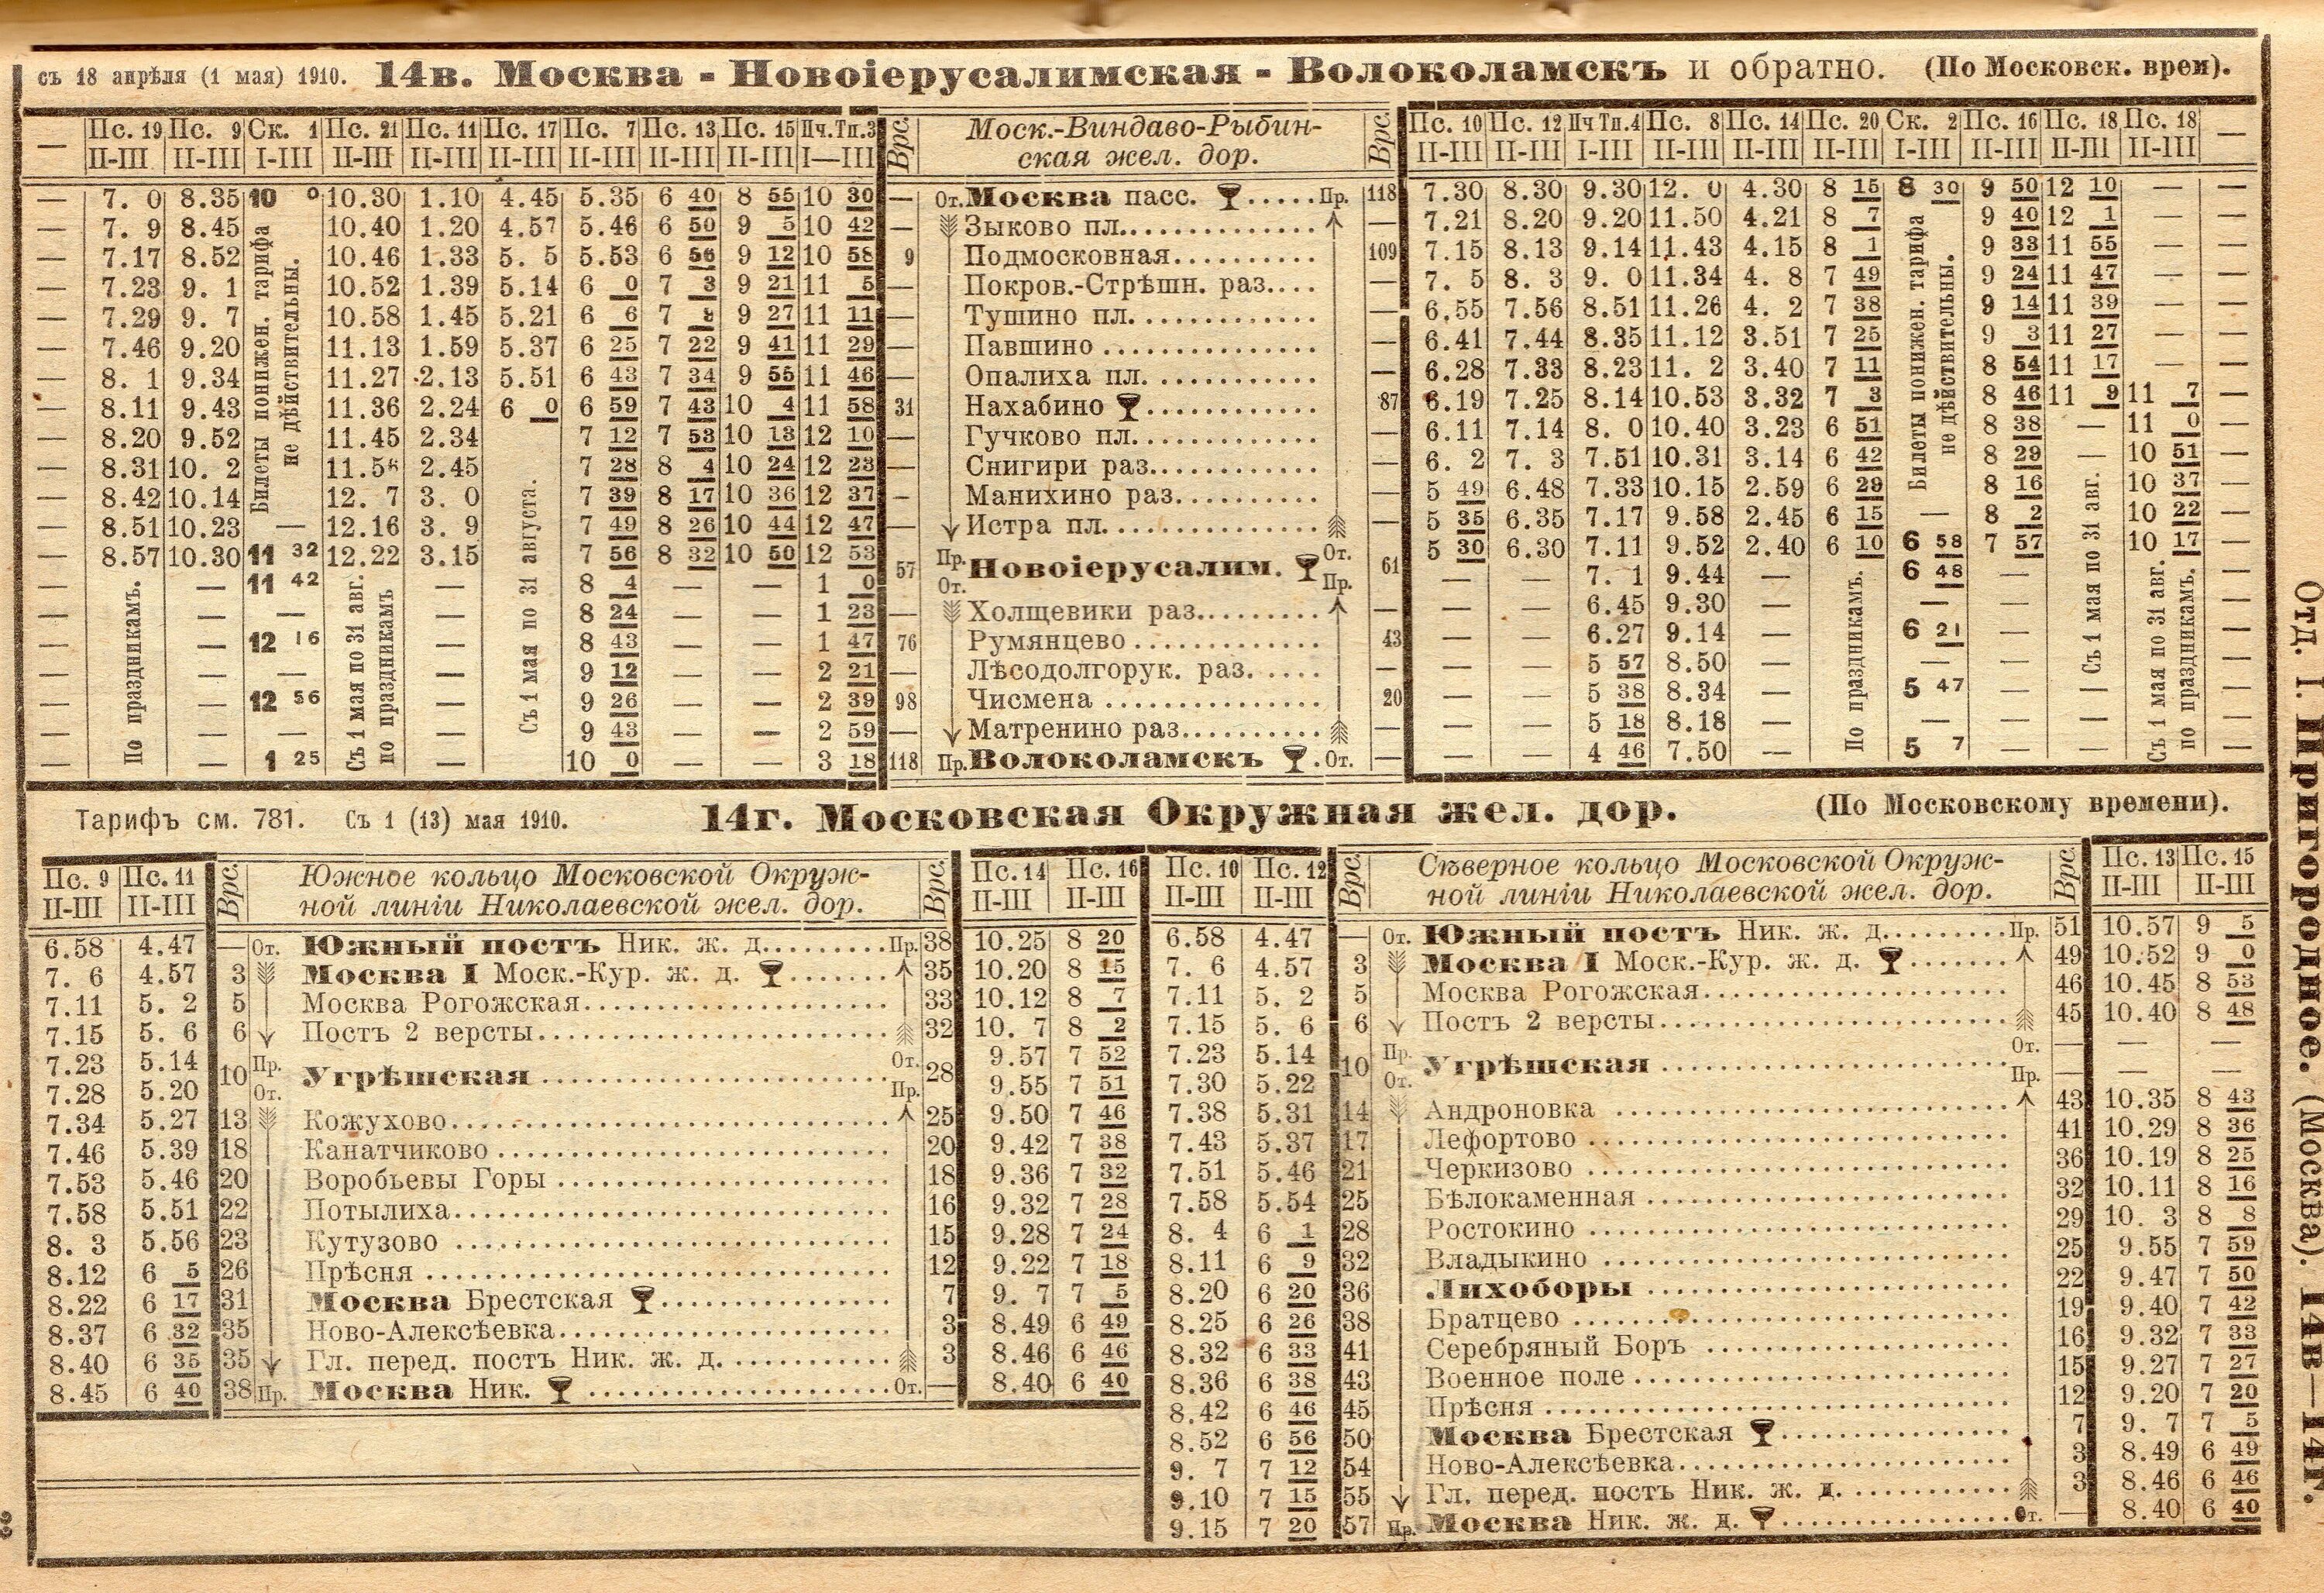 съ 18 апрѣля (1 мая) 1910. 14в. Москва - Новоіерусалимская - Волоколамскъ и обратно. (По Московск. врем).
— Пс. 19 Пс. 9 Ск. 1 Пс. 21 Пс. 11 Пс. 17 Пс. 7 Пс. 13 Пс. 15 Пч.Тп.3 Врс. Моск.-Виндаво-Рыбин- Врс. Пс. 10 Пс. 12 Пч Тп.4 Пс. 8 Пс. 14 Пс. 20 Ск. 2 Пс. 16 Пс. 18 Пс. 18 —
II-III II-III I-III II-III II-III II-III II-III II-III II-III I—III ская жел. дор. II-III II-III I-III II-III II-III II-III I-III II-III II-III II-III
— 7. 0 8.35 10 0 10.30 1.10 4.45 5.35 6 40 8 55 10 30 — От. Москва пасс. ..... Пр. 118 7.30 8.30 9.30 12. 0 4.30 8 15 8 30 9 50 12 10 — —
— 7. 9 8.45 10.40 1.20 4.57 5.46 6 50 9 5 10 42 — Зыково пл. — 7.21 8.20 9.20 11.50 4.21 8 7 9 40 12 1 — —
— 7.17 8.52 10.46 1.33 5. 5 5.53 6 56 9 12 10 58 9 Подмосковная 109 7.15 8.13 9.14 11.43 4.15 8 1 9 33 11 55 — —
— 7.23 9. 1 10.52 1.39 5.14 6 0 7 3 9 21 11 5 — Покров.-Стрѣшн. раз. — 7. 5 8. 3 9. 0 11.34 4. 8 7 49 9 24 11 47 — —
— 7.29 9. 7 10.58 1.45 5.21 6 6 7 8 9 27 11 11 — Тушино пл. — 6.55 7.56 8.51 11.26 4. 2 7 38 9 14 11 39 — —
— 7.46 9.20 11.13 1.59 5.37 6 25 7 22 9 41 11 29 — Павшино — 6.41 7.44 8.35 11.12 3.51 7 25 9 3 11 27 — —
— 8. 1 9.34 11.27 2.13 5.51 6 43 7 34 9 55 11 46 — Опалиха пл. — 6.28 7.33 8.23 11. 2 3.40 7 11 8 54 11 17 — —
— 8.11 9.43 11.36 2.24 6 0 6 59 7 43 10 4 11 58 31 Нахабино 87 6.19 7.25 8.14 10.53 3.32 7 3 8 46 11 9 11 7 —
— 8.20 9.52 11.45 2.34 7 12 7 53 10 13 12 10 — Гучково пл. — 6.11 7.14 8. 0 10.40 3.23 6 51 8 38 — 11 0 —
— 8.31 10. 2 11.58 2.45 7 28 8 4 10 24 12 23 — Снигири раз. — 6. 2 7. 3 7.51 10.31 3.14 6 42 8 29 — 10 51 —
— 8.42 10.14 12. 7 3. 0 7 39 8 17 10 36 12 37 — Манихино раз. — 5 49 6.48 7.33 10.15 2.59 6 29 8 16 10 37 —
— 8.51 10.23 — 12.16 3. 9 7 49 8 26 10 44 12 47 — Истра пл. — 5 35 6.35 7.17 9.58 2.45 6 15 — 8 2 10 22 —
— 8.57 10.30 11 32 12.22 3.15 7 56 8 32 10 50 12 53 57 Пр. Новоіерусалим. От. 61 5 30 6.30 7.11 9.52 2.40 6 10 6 58 7 57 10 17 —
— — 11 42 — 8 4 — — 1 0 От. Пр. — — 7. 1 9.44 — 6 48 — —
— — — — 8 24 — — 1 23 — Холщевики раз. — — — 6.45 9.30 — — — —
— — 12 16 — 8 43 — — 1 47 76 Румянцево 43 — — 6.27 9.14 — 6 21 — —
— — — — 9 12 — — 2 21 — Лѣсодолгорук. раз. — — — 5 57 8.50 — — — —
— — 12 56 — 9 26 — — 2 39 98 Чисмена 20 — — 5 38 8.34 — 5 47 — — —
— — — — 9 43 — — 2 59 — Матренино раз. — — — 5 18 8.18 — — — — —
— — 1 25 — 10 0 — — 3 18 118 Пр. Волоколамскъ От. — — — 4 46 7.50 — 5 7 — — —
По праздникамъ.
Билеты понижен. тарифа
не дѣйствительны.
Съ 1 мая по 31 авг.
по праздникамъ
Съ 1 мая по 31 августа.
По праздникамъ.
Билеты понижен. тарифа
не дѣйствительны.
Съ 1 мая по 31 авг.
Съ 1 мая по 31 авг.
по праздникамъ.
Тарифъ см. 781. Съ 1 (13) мая 1910. 14г. Московская Окружная жел. дор. (По Московскому времени).
Пс. 9 Пс. 11 Врс. Южное кольцо Московской Окруж- Врс. Пс. 14 Пс. 16
II-III II-III ной линіи Николаевской жел. дор. II-III II-III
6.58 4.47 — От. Южный постъ Ник. ж. д. Пр. 38 10.25 8 20
7. 6 4.57 3 Москва I Моск.-Кур. ж. д. 35 10.20 8 15
7.11 5. 2 5 Москва Рогожская 33 10.12 8 7
7.15 5. 6 6 Постъ 2 версты 32 10. 7 8 2
7.23 5.14 10 Пр. Угрѣшская От. 28 9.57 7 52
7.28 5.20 От. Пр. 9.55 7 51
7.34 5.27 13 Кожухово 25 9.50 7 46
7.46 5.39 18 Канатчиково 20 9.42 7 38
7.53 5.46 20 Воробьевы Горы 18 9.36 7 32
7.58 5.51 22 Потылиха 16 9.32 7 28
8. 3 5.56 23 Кутузово 15 9.28 7 24
8.12 6 5 26 Прѣсня 12 9.22 7 18
8.22 6 17 31 Москва Брестская 7 9. 7 7 5
8.37 6 32 35 Ново-Алексѣевка 3 8.49 6 49
8.40 6 35 35 Гл. перед. постъ Ник. ж. д. 3 8.46 6 46
8.45 6 40 38 Пр. Москва Ник. От. — 8.40 6 40
Пс. 10 Пс. 12 Врс. Сѣверное кольцо Московской Окруж- Врс. Пс. 13 Пс. 15
II-III II-III ной линіи Николаевской жел. дор. II-III II-III
6.58 4.47 — От. Южный постъ Ник. ж. д. Пр. 51 10.57 9 5
7. 6 4.57 3 Москва I Моск.-Кур. ж. д. 49 10.52 9 0
7.11 5. 2 5 Москва Рогожская 46 10.45 8 53
7.15 5. 6 6 Постъ 2 версты 45 10.40 8 48
7.23 5.14 10 Пр. Угрѣшская От. — — —
7.30 5.22 От. Пр. — — —
7.38 5.31 14 Андроновка 43 10.35 8 43
7.43 5.37 17 Лефортово 41 10.29 8 36
7.51 5.46 21 Черкизово 36 10.19 8 25
7.58 5.54 25 Бѣлокаменная 32 10.11 8 16
8. 4 6 1 28 Ростокино 29 10. 3 8 8
8.11 6 9 32 Владыкино 25 9.55 7 59
8.20 6 20 36 Лихоборы 22 9.47 7 50
8.25 6 26 38 Братцево 19 9.40 7 42
8.32 6 33 41 Серебряный Боръ 16 9.32 7 33
8.36 6 38 43 Военное поле 15 9.27 7 27
8.42 6 46 45 Прѣсня 12 9.20 7 20
8.52 6 56 50 Москва Брестская 7 9. 7 7 5
9. 7 7 12 54 Ново-Алексѣевка 3 8.49 6 49
9.10 7 15 55 Гл. перед. постъ Ник. ж. д. 3 8.46 6 46
9.15 7 20 57 Пр. Москва Ник. ж. д. От. — 8.40 6 40
Отд. I. Пригородное. (Москва). 14в—14г.